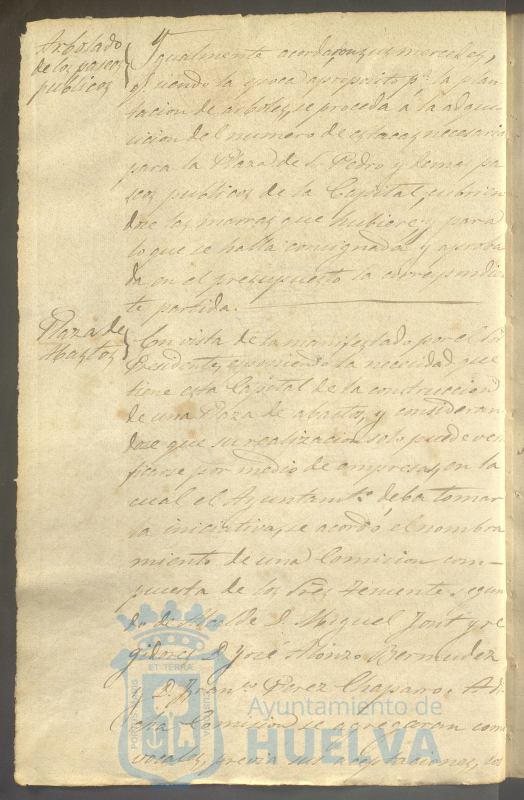 Arbolado
de los paseos
publicos
Ygualmente acordaron sus mercedes,
siendo la epoca aproposito pª la plan
tacion de arboles, se proceda á la adqui
sicion del numero de estacas necesarias
para la Plaza de S. Pedro y demas pa
seos publicos de la Capital, cubrien
dose las marras que hubiere, y para
lo que se halla consignada y aproba
da en el presupuesto la correspondien
te partida.
Plaza de
Abastos
En vista de lo manifestado por el Sor
Presidente, exponiendo la necesidad que
tiene esta Capital de la construccion
de una Plaza de abastos, y consideran
dose que su realizacion solo puede veri
ficarse por medio de empresas, en la
cual el Ayuntamtº deba tomar
la iniciativa, se acordó el nombra
miento de una Comicion com-
puesta de los Sres Teniente segun
do de Alcalde D. Miguel y re
gidores D. José Alonzo Bermudez
y D. Francº Perez Chaparro. A di
cha Comicion se agregaran como
vocales, previa sus aceptaciones, los
Ayuntamiento de
HUELVA